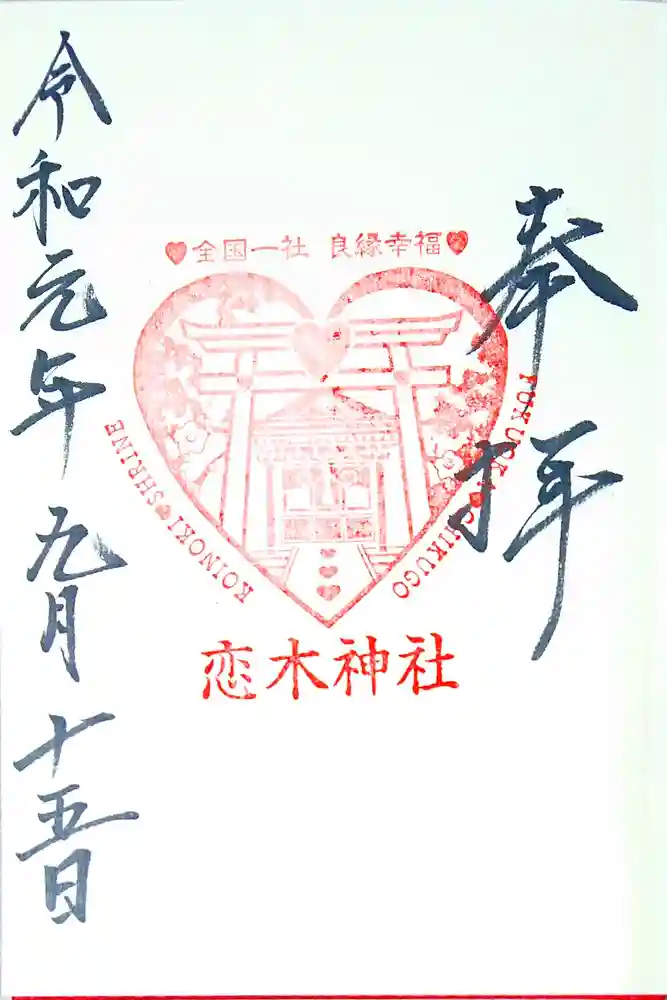 奉拝
全国一社 良縁幸福
KOINOKI SHRINE
FUKUOKA CHIKUGO
恋木神社
令和元年九月十五日